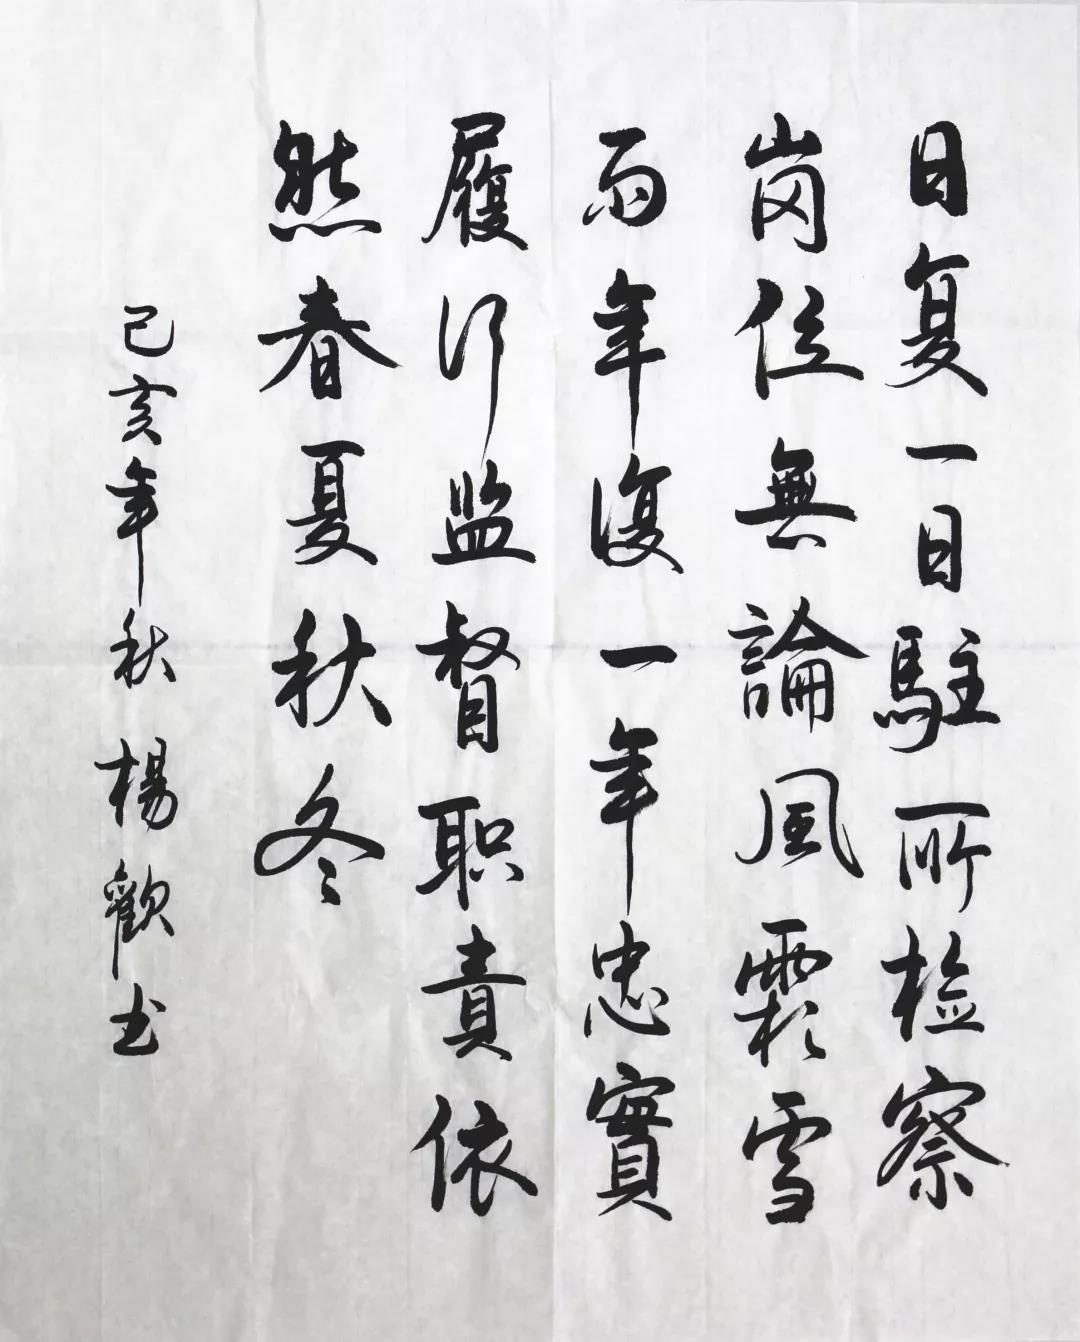 日复一日駐所检察
岗位無論風霜雪
雨年復一年忠實
履行监督职責依
然春夏秋冬
己亥年秋楊歡书